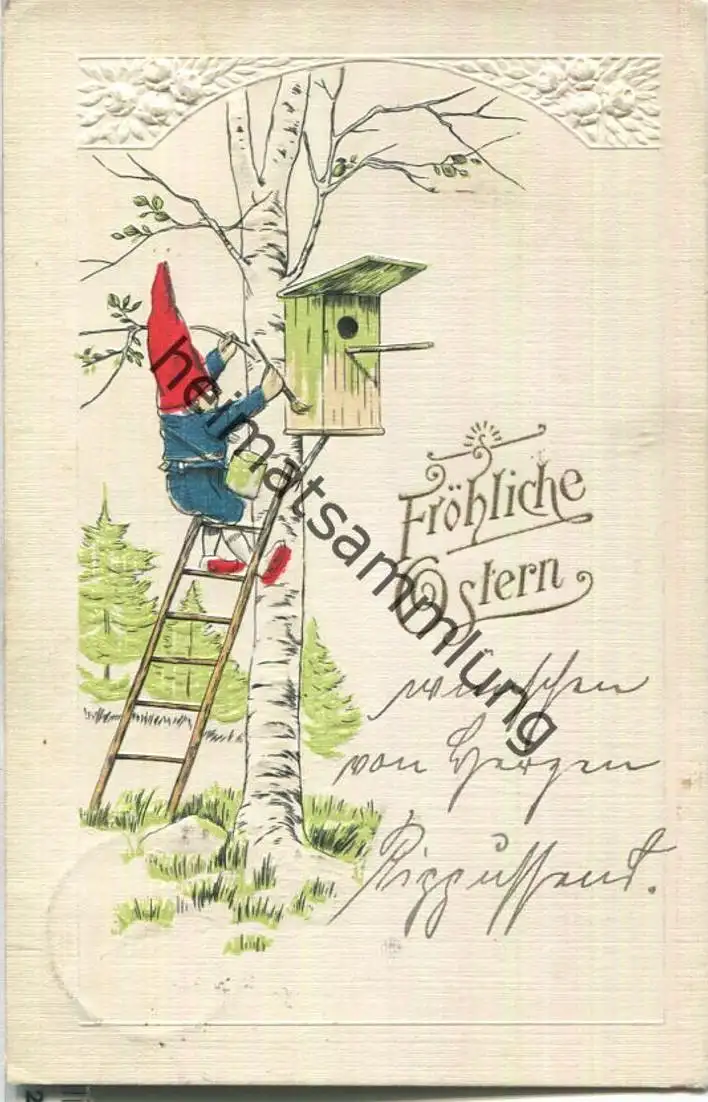 Fröhliche
Ostern
wünschen
von Herzen
heimatsammlung